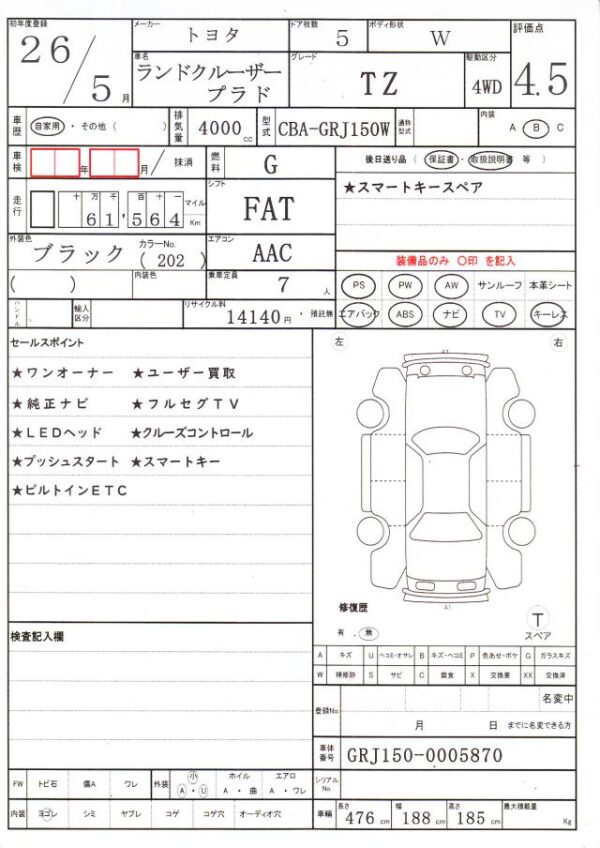 初年度登録 メーカー トヨタ ドア枚数 5 ボディ形状 W 評価点
26/5月 車名 ランドクルーザー プラド グレード TZ 駆動区分 4WD 4.5
車歴 自家用・その他( ) 排気量 4000cc 型式 CBA-GRJ150W 通称型式 内装 A B C
車検 年 月/抹消 燃料 G 後日送り品(保証書・取扱説明書 等)
走行 十万千百十一 61'564 マイル Km シフト FAT ★スマートキースペア
外装色 ブラック カラーNo. (202) エアコン AAC 装備品のみ 〇印 を記入
( ) 内装色 乗車定員 7人 PS PW AW サンルーフ 本革シート
ハンドル 輸入区分 リサイクル料 14140円・預託無 エアバック ABS ナビ TV キーレス
セールスポイント
★ワンオーナー ★ユーザー買取
★純正ナビ ★フルセグTV
★LEDヘッド ★クルーズコントロール
★プッシュスタート ★スマートキー
★ビルトインETC
左 右
A1
A1
修復歴
有 . 無
T
スペア
検査記入欄
A キズ U ヘコミ・オサレ B キズ・ヘコミ P 色あせ・ボケ G ガラスキズ
W 補修跡 S サビ C 腐食 X 交換要 XX 交換済
登録No. 名変中
月 日 までに名変できる方
車体番号 GRJ150-0005870
シリアルNo.
FW トビ石 傷A ワレ 外装 小 A・U ホイル A・曲 エアロ A・ワレ
内装 ヨゴレ シミ ヤブレ コゲ コゲ穴 オーディオ穴 車輛 長さ 476cm 幅 188cm 高さ 185cm 最大積載量 Kg